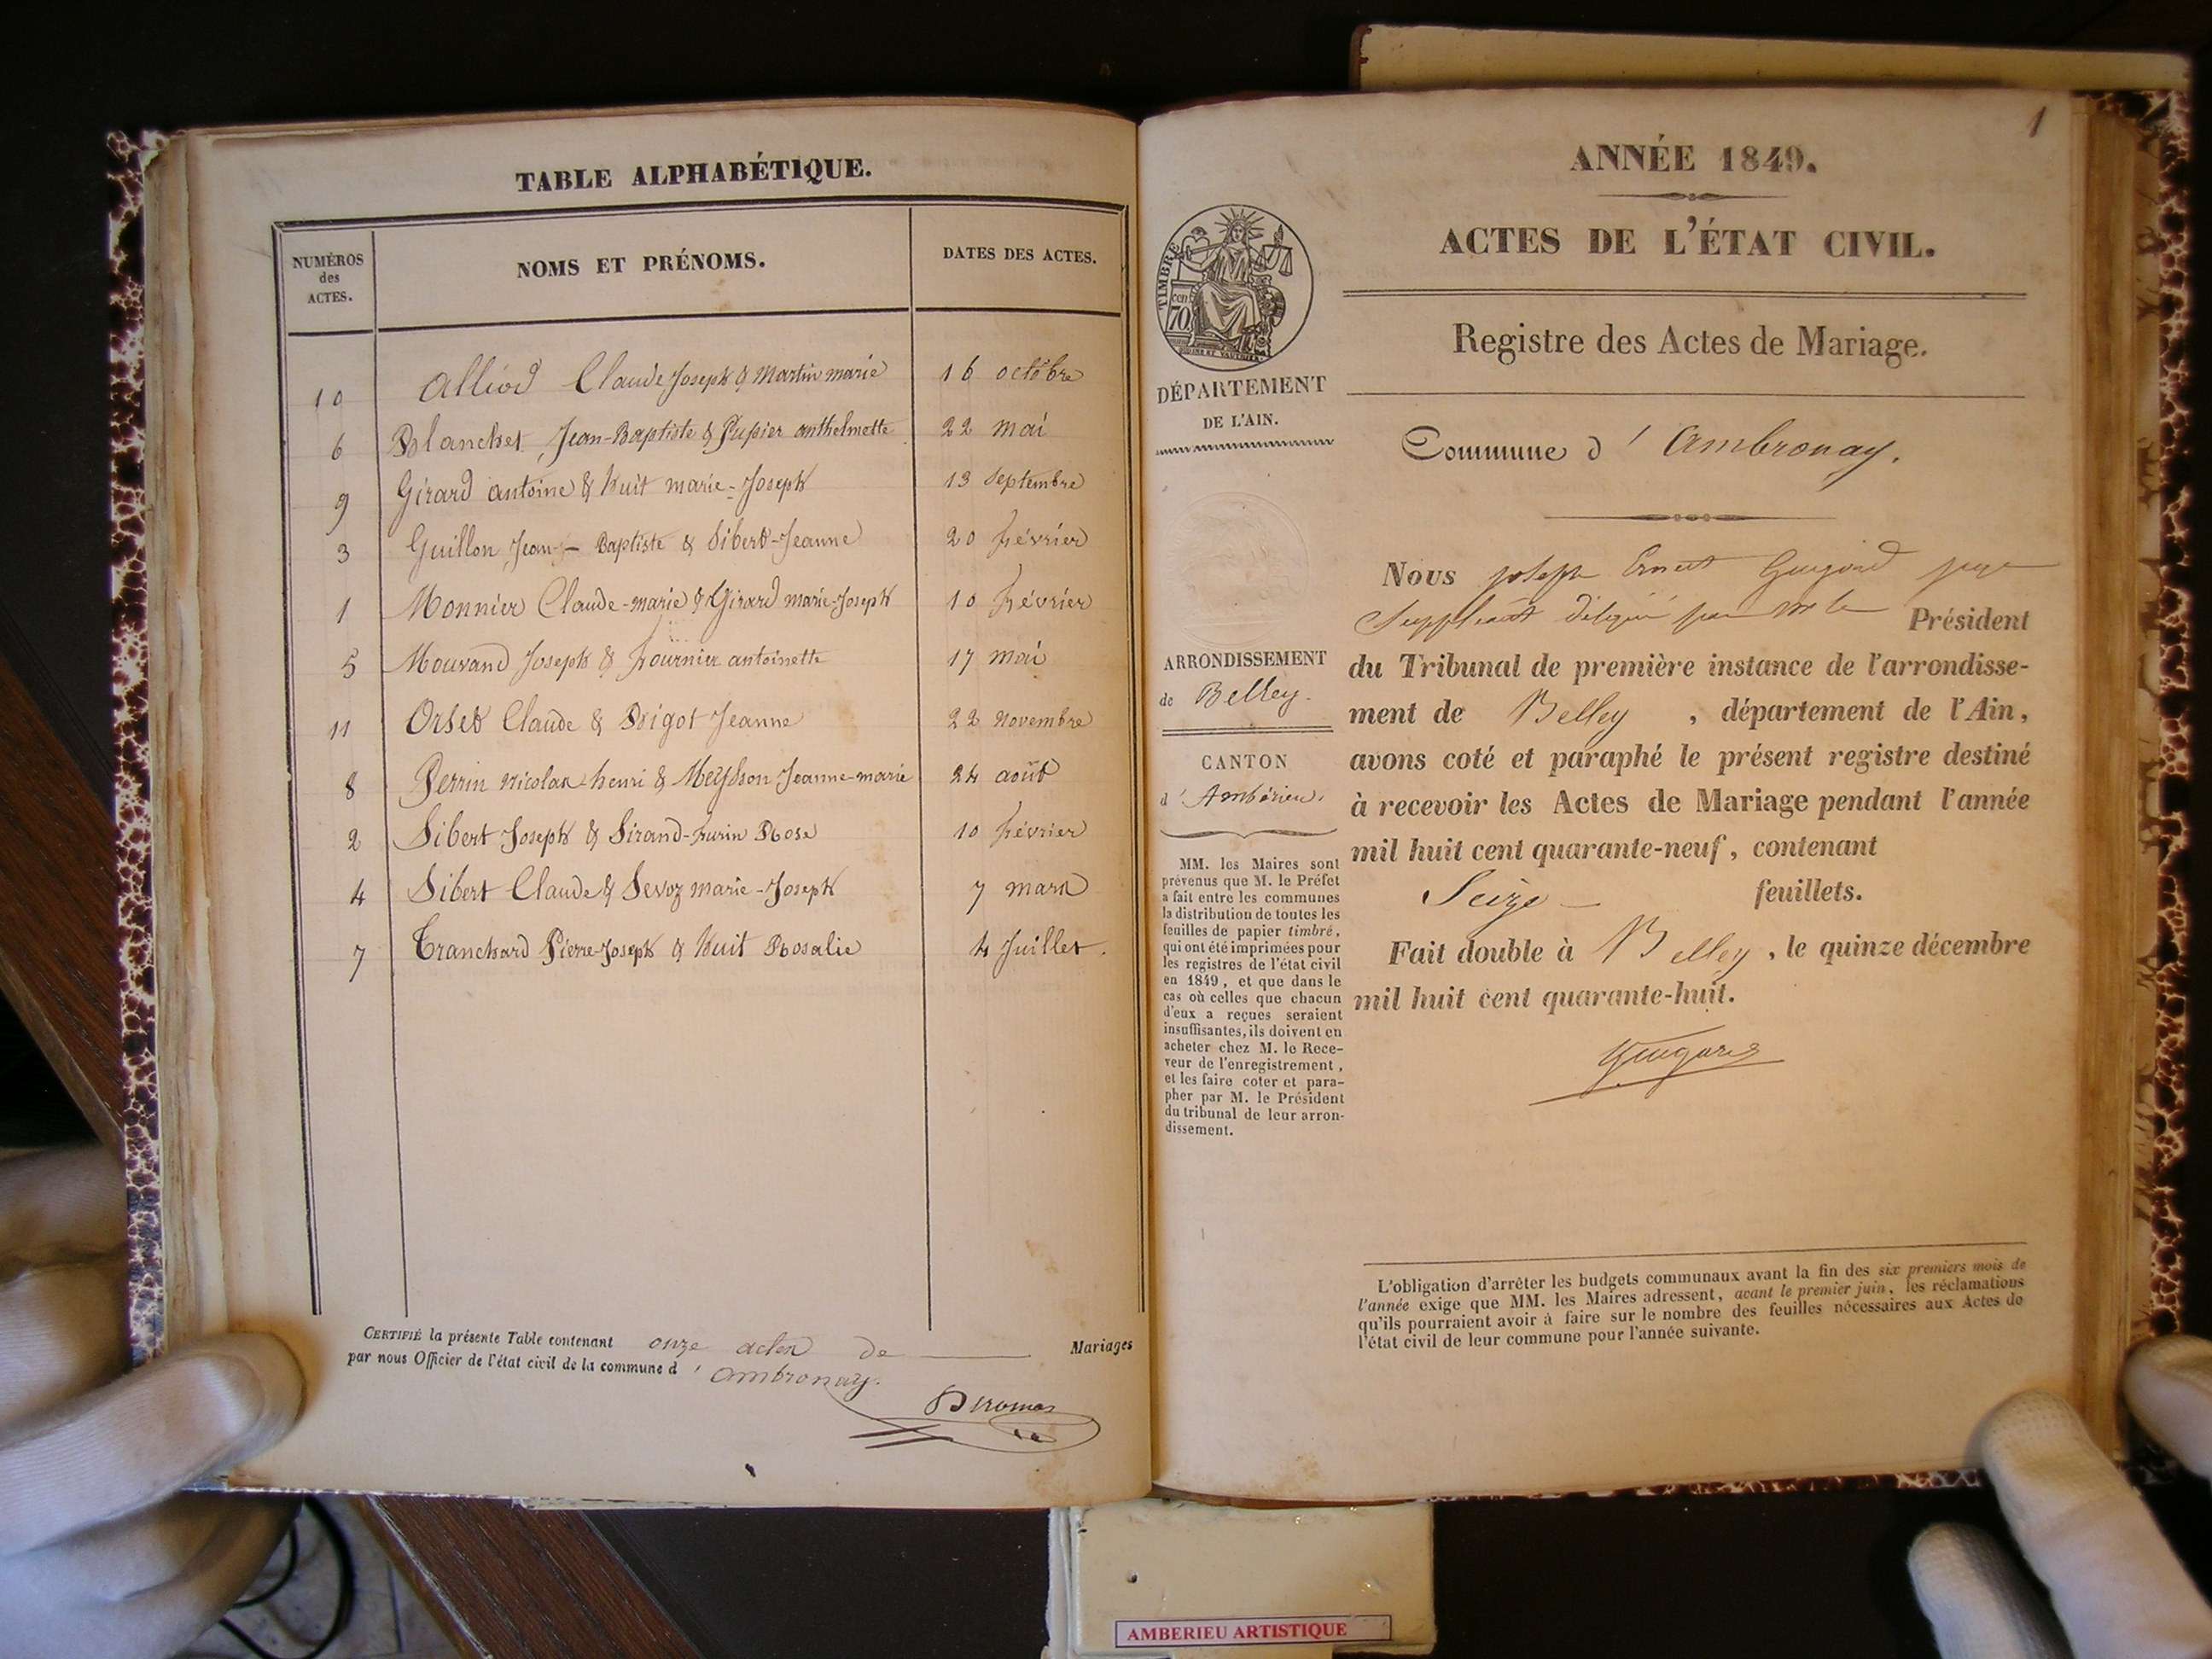 TABLE ALPHABÉTIQUE.
NUMÉROS
des
ACTES.
NOMS ET PRÉNOMS.
DATES DES ACTES.
10 Alliod Claude Joseph & Martin marie 16 octobre
6 Blanchet Jean-Baptiste & Pupier anthelmette 22 mai
9 Girard antoine & Nuit marie-Joseph 13 septembre
3 Guillon Jean-Baptiste & Sibert-Jeanne 20 février
1 Monnier Claude-marie & Girard marie-Joseph 10 février
5 Mouvand Joseph & fournier antoinette 17 mai
11 Orset Claude & Brigot Jeanne 22 novembre
8 Perrin nicolas-henri & Meysson Jeanne-marie 24 août
2 Sibert Joseph & Sirand-furin Rose 10 février
4 Sibert Claude & Sevoz marie-Joseph 7 mars
7 Tranchard Pierre-Joseph & Nuit Rosalie 4 Juillet.
CERTIFIÉ la présente Table contenant onze actes de Mariages
par nous Officier de l'état civil de la commune d' ambronay.
1
ANNÉE 1849.
ACTES DE L'ÉTAT CIVIL.
Registre des Actes de Mariage.
TIMBRE
cen
70
DÉPARTEMENT
DE L'AIN.
ARRONDISSEMENT
de Belley.
CANTON
d'Ambérieu.
MM. les Maires sont
prévenus que M. le Préfet
a fait entre les communes
la distribution de toutes les
feuilles de papier timbré,
qui ont été imprimées pour
les registres de l'état civil
en 1849, et que dans le
cas où celles que chacun
d'eux a reçues seraient
insuffisantes, ils doivent en
acheter chez M. le Rece-
veur de l'enregistrement,
et les faire coter et para-
pher par M. le Président
du tribunal de leur arron-
dissement.
Commune d' Ambronay.
Nous joseph Ernest juge
Suppléant délégué par Mr le Président
du Tribunal de première instance de l'arrondisse-
ment de Belley, département de l'Ain,
avons coté et paraphé le présent registre destiné
à recevoir les Actes de Mariage pendant l'année
mil huit cent quarante-neuf, contenant
Seize feuillets.
Fait double à Belley, le quinze décembre
mil huit cent quarante-huit.
L'obligation d'arrêter les budgets communaux avant la fin des six premiers mois de
l'année exige que MM. les Maires adressent, avant le premier juin, les réclamations
qu'ils pourraient avoir à faire sur le nombre des feuilles nécessaires aux Actes de
l'état civil de leur commune pour l'année suivante.
AMBERIEU ARTISTIQUE